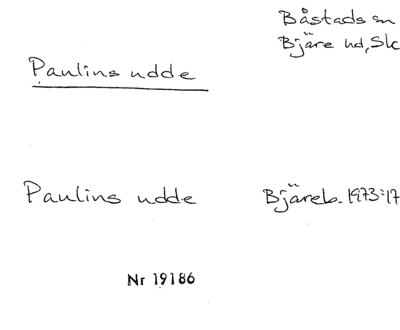 Båstads sn
Bjäre hd, Sk
Paulins udde
Paulins udde Bjäreb. 1973:17
Nr 19186